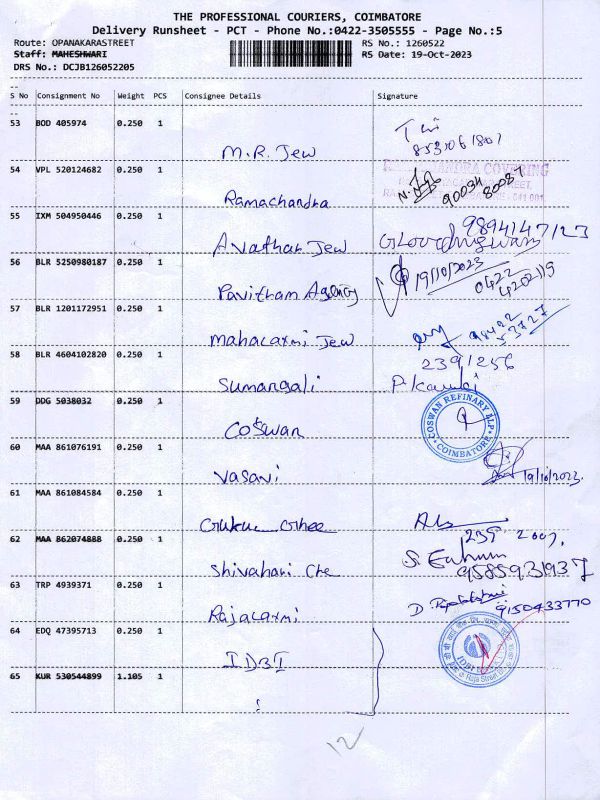 THE PROFESSIONAL COURIERS, COIMBATORE
Delivery Runsheet - PCT - Phone No.:0422-3505555 - Page No.:5
Route: OPANAKARASTREET RS No.: 1260522
Staff: MAHESHWARI RS Date: 19-Oct-2023
DRS No.: DCJB126052205
S No Consignment No Weight PCS Consignee Details Signature
53 BOD 405974 0.250 1
M.R. Jew 8531061801
54 VPL 520124682 0.250 1
Ramachandra 90034 80087
55 IXM 504950446 0.250 1
Avathar Jew 9894147123
56 BLR 5250980187 0.250 1 19/10/2023
Pavitham Agency 0422
57 BLR 1201172951 0.250 1
Mahalaxmi Jew
58 BLR 4604102820 0.250 1 2391256
Sumangali
59 DDG 5038032 0.250 1 COSWAN REFINARY LLP
Coswan COIMBATORE
60 MAA 861076191 0.250 1
Vasavi 19/10/2023.
61 MAA 861084584 0.250 1
62 MAA 862074888 0.250 1 239 2007,
Shivahari Che 9585931937
63 TRP 4939371 0.250 1
Rajalaxmi 9150433770
64 EDQ 47395713 0.250 1
IDBI
65 KUR 530544899 1.105 1
12